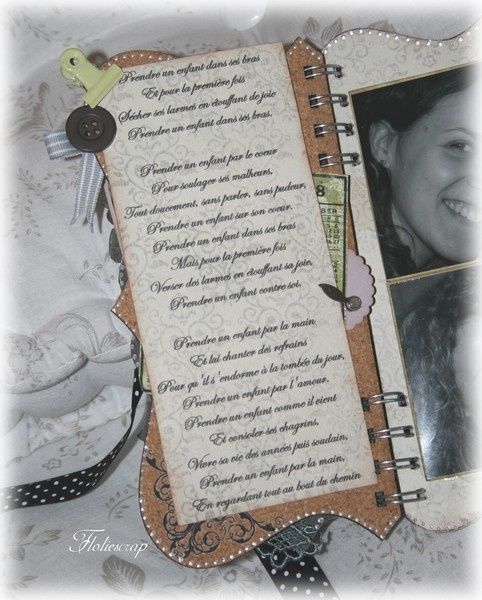 Prendre un enfant dans ses bras
Et pour la première fois
Sécher ses larmes en étouffant de joie
Prendre un enfant dans ses bras.
Prendre un enfant par le coeur
Pour soulager ses malheurs,
Tout doucement, sans parler, sans pudeur,
Prendre un enfant sur son coeur.
Prendre un enfant dans ses bras
Mais pour la première fois
Verser des larmes en étouffant sa joie,
Prendre un enfant contre soi.
Prendre un enfant par la main
Et lui chanter des refrains
Pour qu'il s'endorme à la tombée du jour,
Prendre un enfant par l'amour.
Prendre un enfant comme il vient
Et consoler ses chagrins,
Vivre sa vie des années puis soudain,
Prendre un enfant par la main,
En regardant tout au bout du chemin
8
Foliescrap